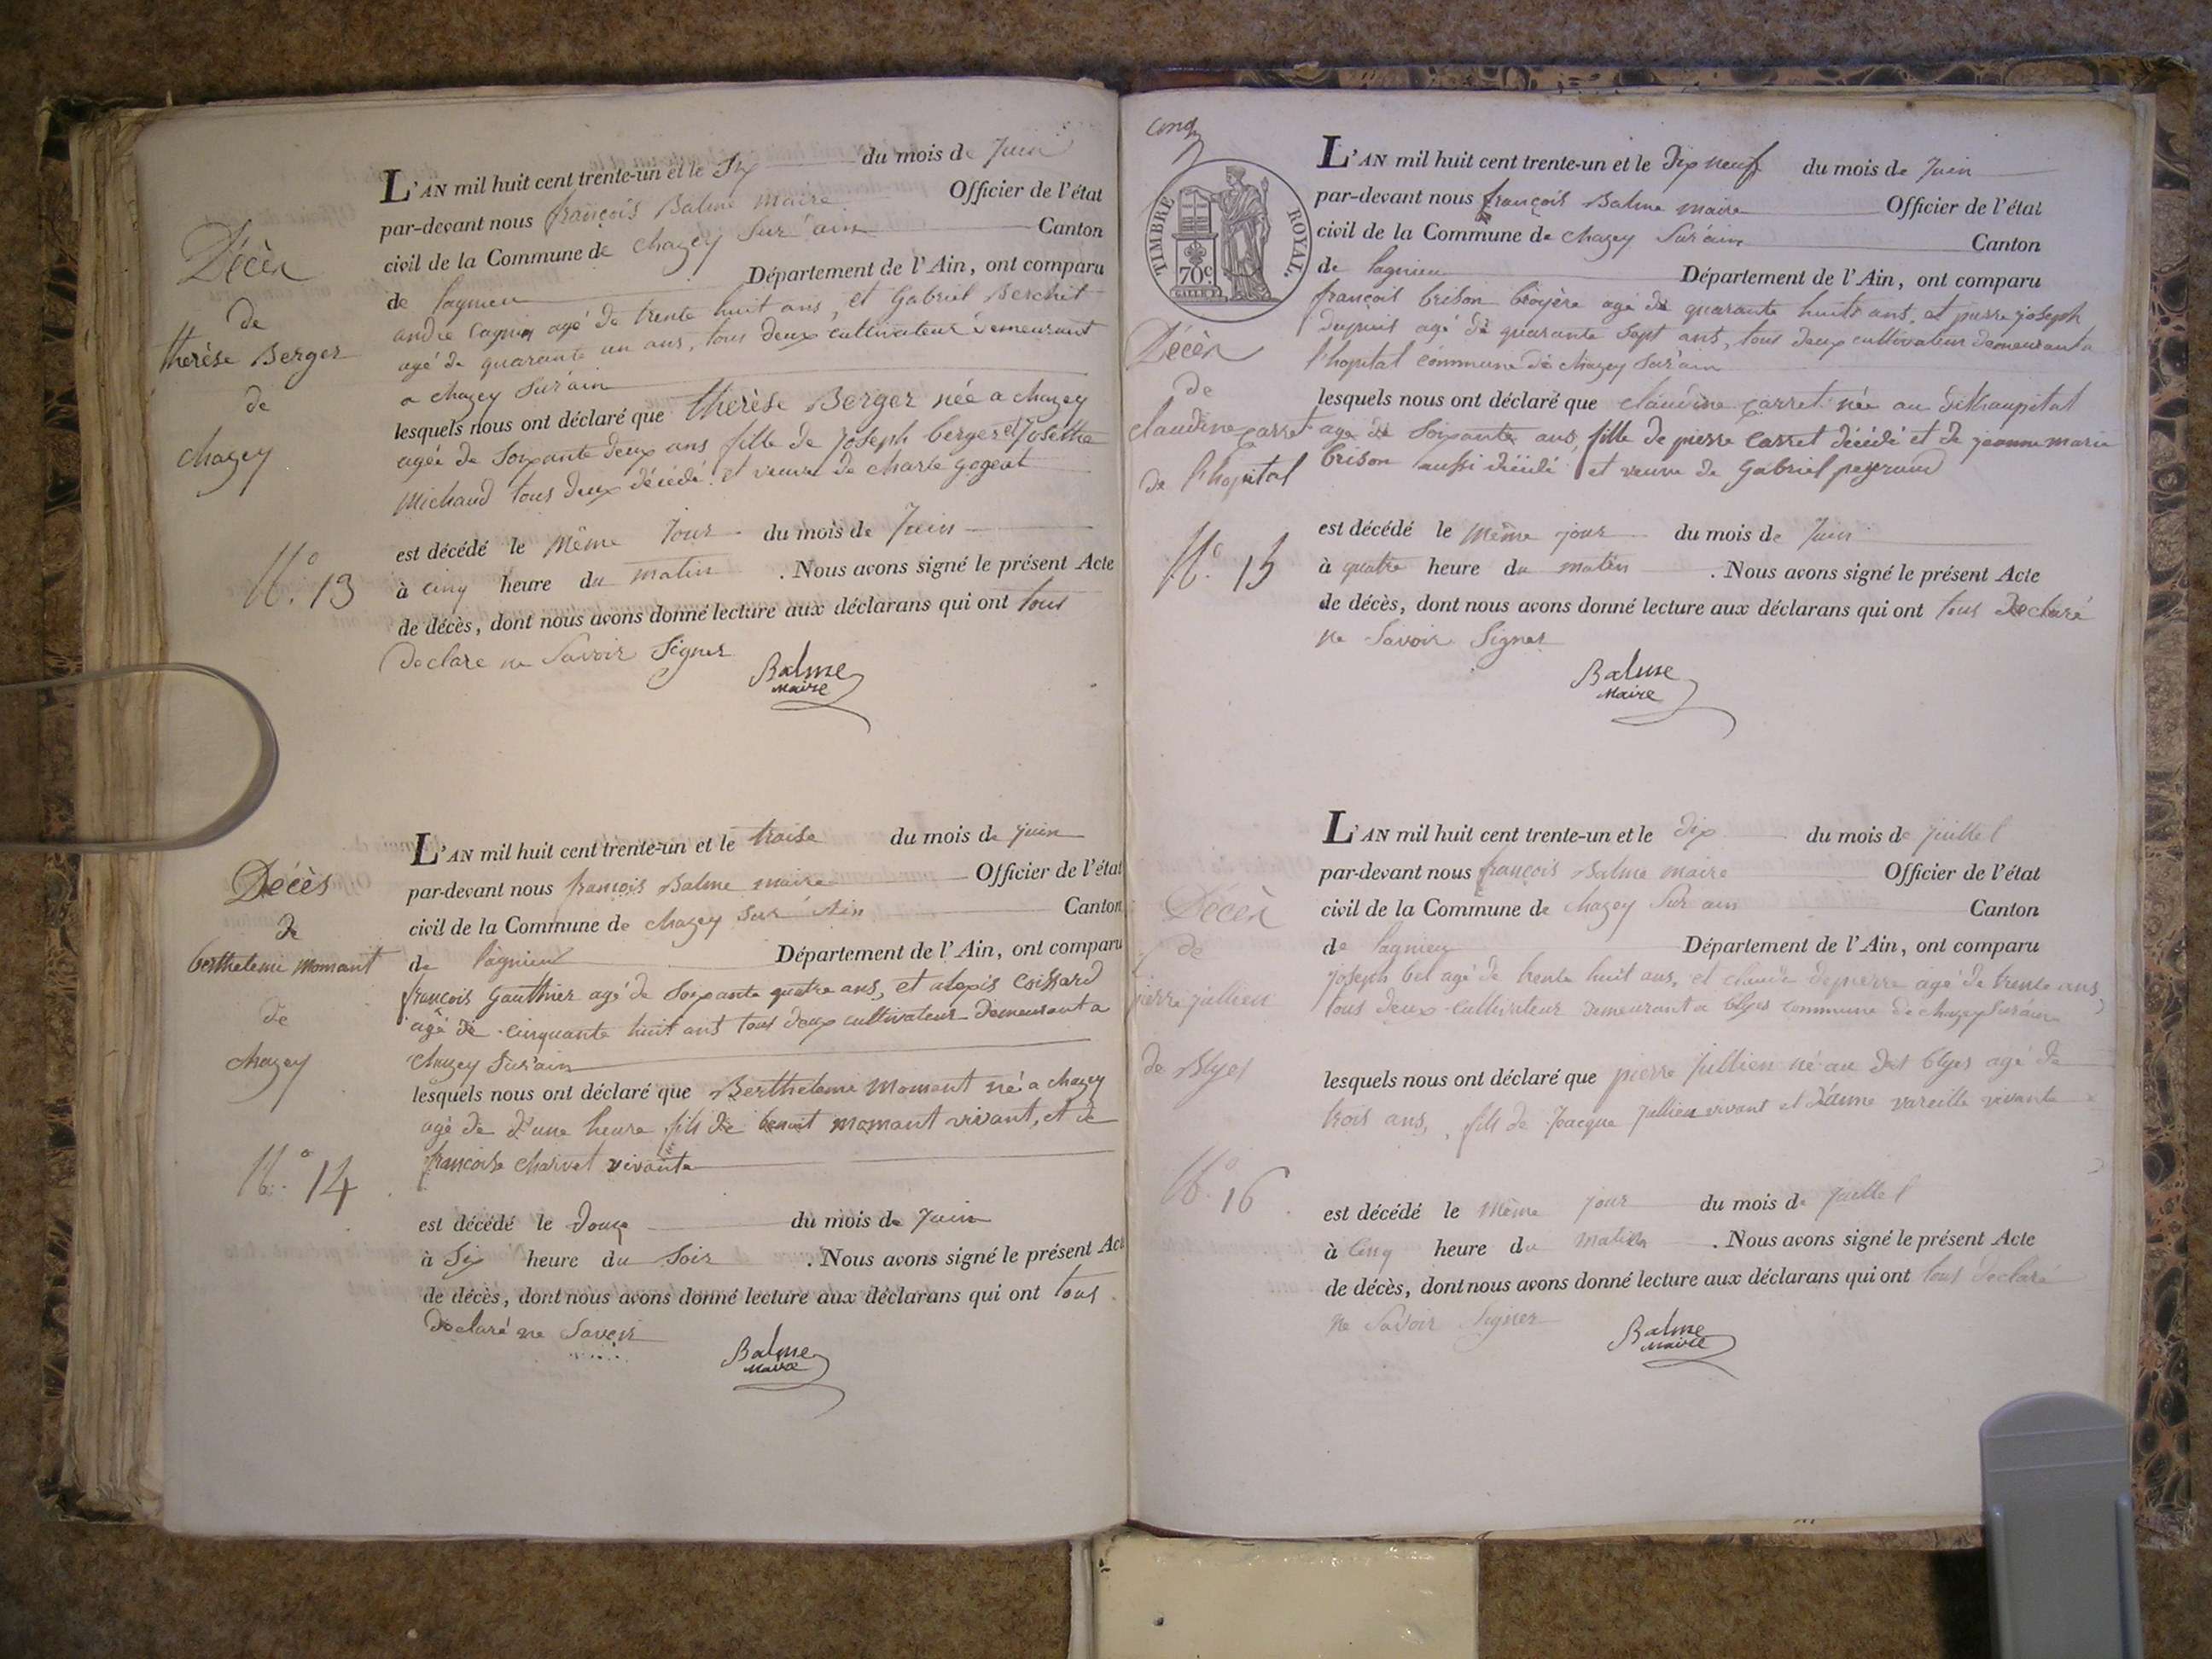 L'AN mil huit cent trente-un et le Six du mois de Juin
par-devant nous françois Balme maire Officier de l'état
civil de la Commune de chazey Sur ain Canton
de lagnieu Département de l'Ain, ont comparu
andré agé de trente huit ans, et Gabriel Berchet
agé de quarante un ans, tous deux cultivateur demeurant
a chazey Sur ain
lesquels nous ont déclaré que therèse Berger née a chazey
agée de Soixante deux ans fille de Joseph berger et Josette
Michaud tous deux décédé et veuve de charle gogeat
est décédé le même jour du mois de Juin
à cinq heure du matin . Nous avons signé le présent Acte
de décès, dont nous avons donné lecture aux déclarans qui ont tous
declare ne Savoir Signer
Balme
Maire
Décès
de
therèse Berger
de
chazey
N.° 13
L'AN mil huit cent trente-un et le traise du mois de juin
par-devant nous francois Balme maire Officier de l'état
civil de la Commune de chazey Sur Ain Canton
de lagnieu Département de l'Ain, ont comparu
francois Gauthier agé de Soixante quatre ans, et alexis Coissard
agé de cinquante huit ans tous deux cultivateur demeurant a
chazey Sur ain
lesquels nous ont déclaré que Berthelemi Momont né a chazey
agé de d'une heure fils de benoit momant vivant, et de
francoise charvet vivante
est décédé le douze du mois de Juin
à Six heure du Soir . Nous avons signé le présent Acte
de décès, dont nous avons donné lecture aux déclarans qui ont tous
declaré ne Savoir
Balme
Maire
Décès
de
berthelemi momant
de
chazey
N.° 14
cinq
TIMBRE ROYAL.
70c.
L'AN mil huit cent trente-un et le Dix neuf du mois de Juin
par-devant nous françois Balme maire Officier de l'état
civil de la Commune de chazey Sur ain Canton
de lagnieu Département de l'Ain, ont comparu
françois brison broyère agé de quarante huit ans, et pierre joseph
dupuis agé de quarante Sept ans, tous deux cultivateur demeurant a
l'hopital commune de chazey Sur ain
lesquels nous ont déclaré que claudine carret née au
age de Soixante ans, fille de pierre carret décédé et de jeanne marie
brison aussi décédé et veuve de Gabriel peyraud
est décédé le même jour du mois de Juin
à quatre heure du matin . Nous avons signé le présent Acte
de décès, dont nous avons donné lecture aux déclarans qui ont tous Declaré
ne Savoir Signer
Balme
Maire
Décès
de
claudine carret
de l'hopital
N.° 15
L'AN mil huit cent trente-un et le dix du mois de juillet
par-devant nous françois Balme maire Officier de l'état
civil de la Commune de chazey Sur ain Canton
de lagnieu Département de l'Ain, ont comparu
joseph bel agé de trente huit ans, et claude depierre agé de trente ans
tous deux cultivateur demeurant a blyes commune de chazey Sur ain
lesquels nous ont déclaré que pierre Jullien né au dit blyes agé de
trois ans, fils de Jacque Jullien vivant et d'anne vareille vivante
est décédé le même jour du mois de juillet
à cinq heure du matin . Nous avons signé le présent Acte
de décès, dont nous avons donné lecture aux déclarans qui ont tous declaré
ne Savoir Signer
Balme
Maire
Décès
de
pierre jullien
de Blyes
N.° 16